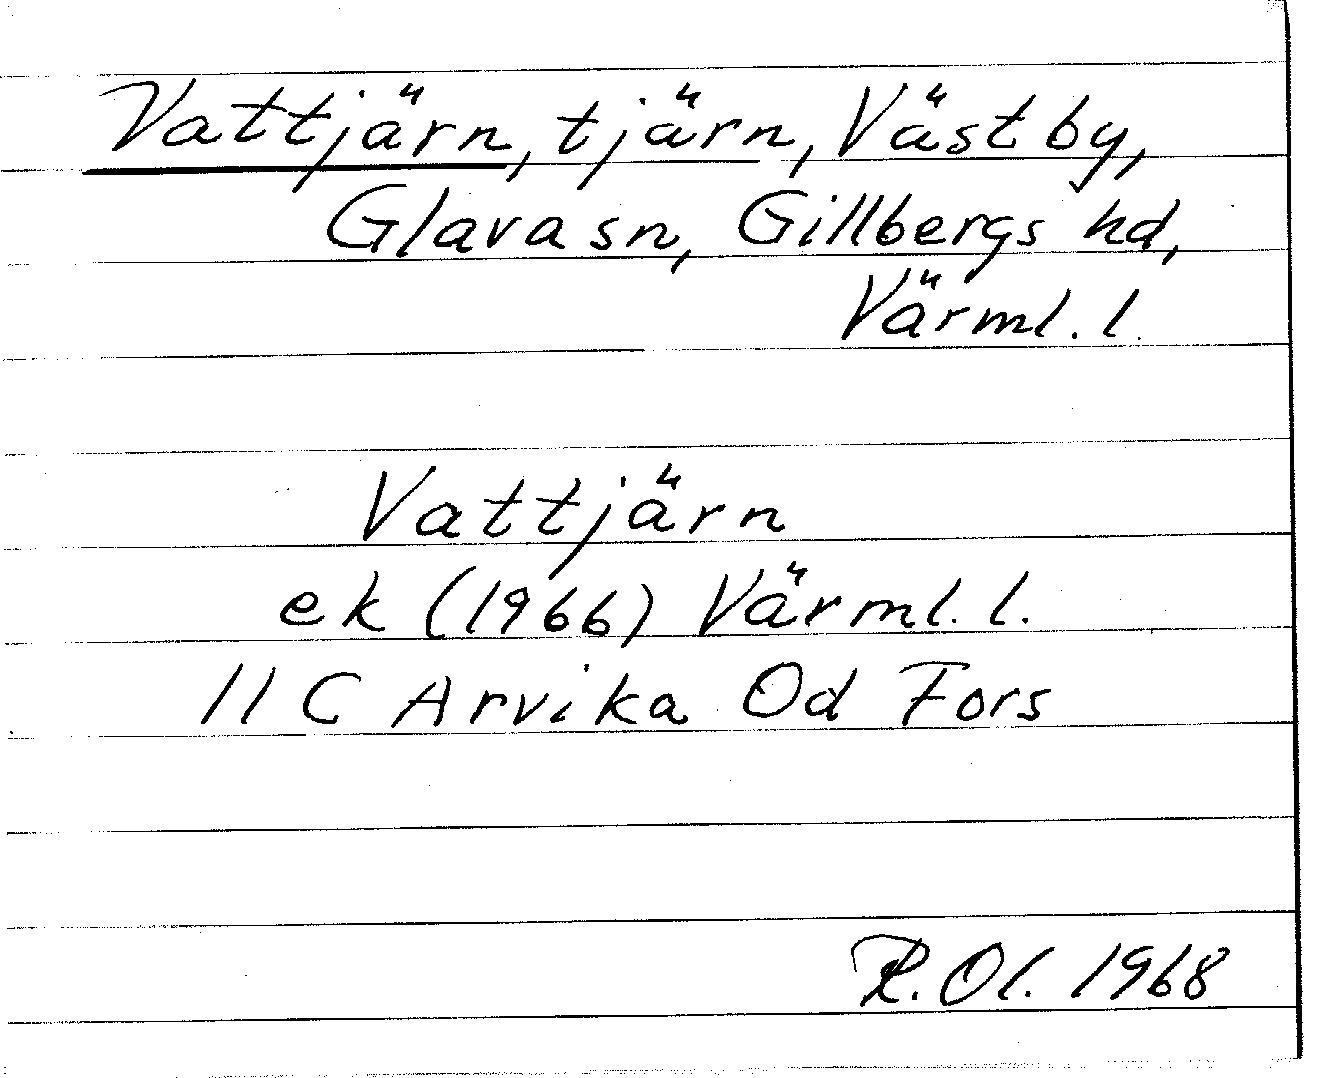 Vattjärn, tjärn, Västby,
Glava sn, Gillbergs hd,
Värml. l.
Vattjärn
ek (1966) Värml. l.
11 C Arvika Od Fors
R. Ol. 1968